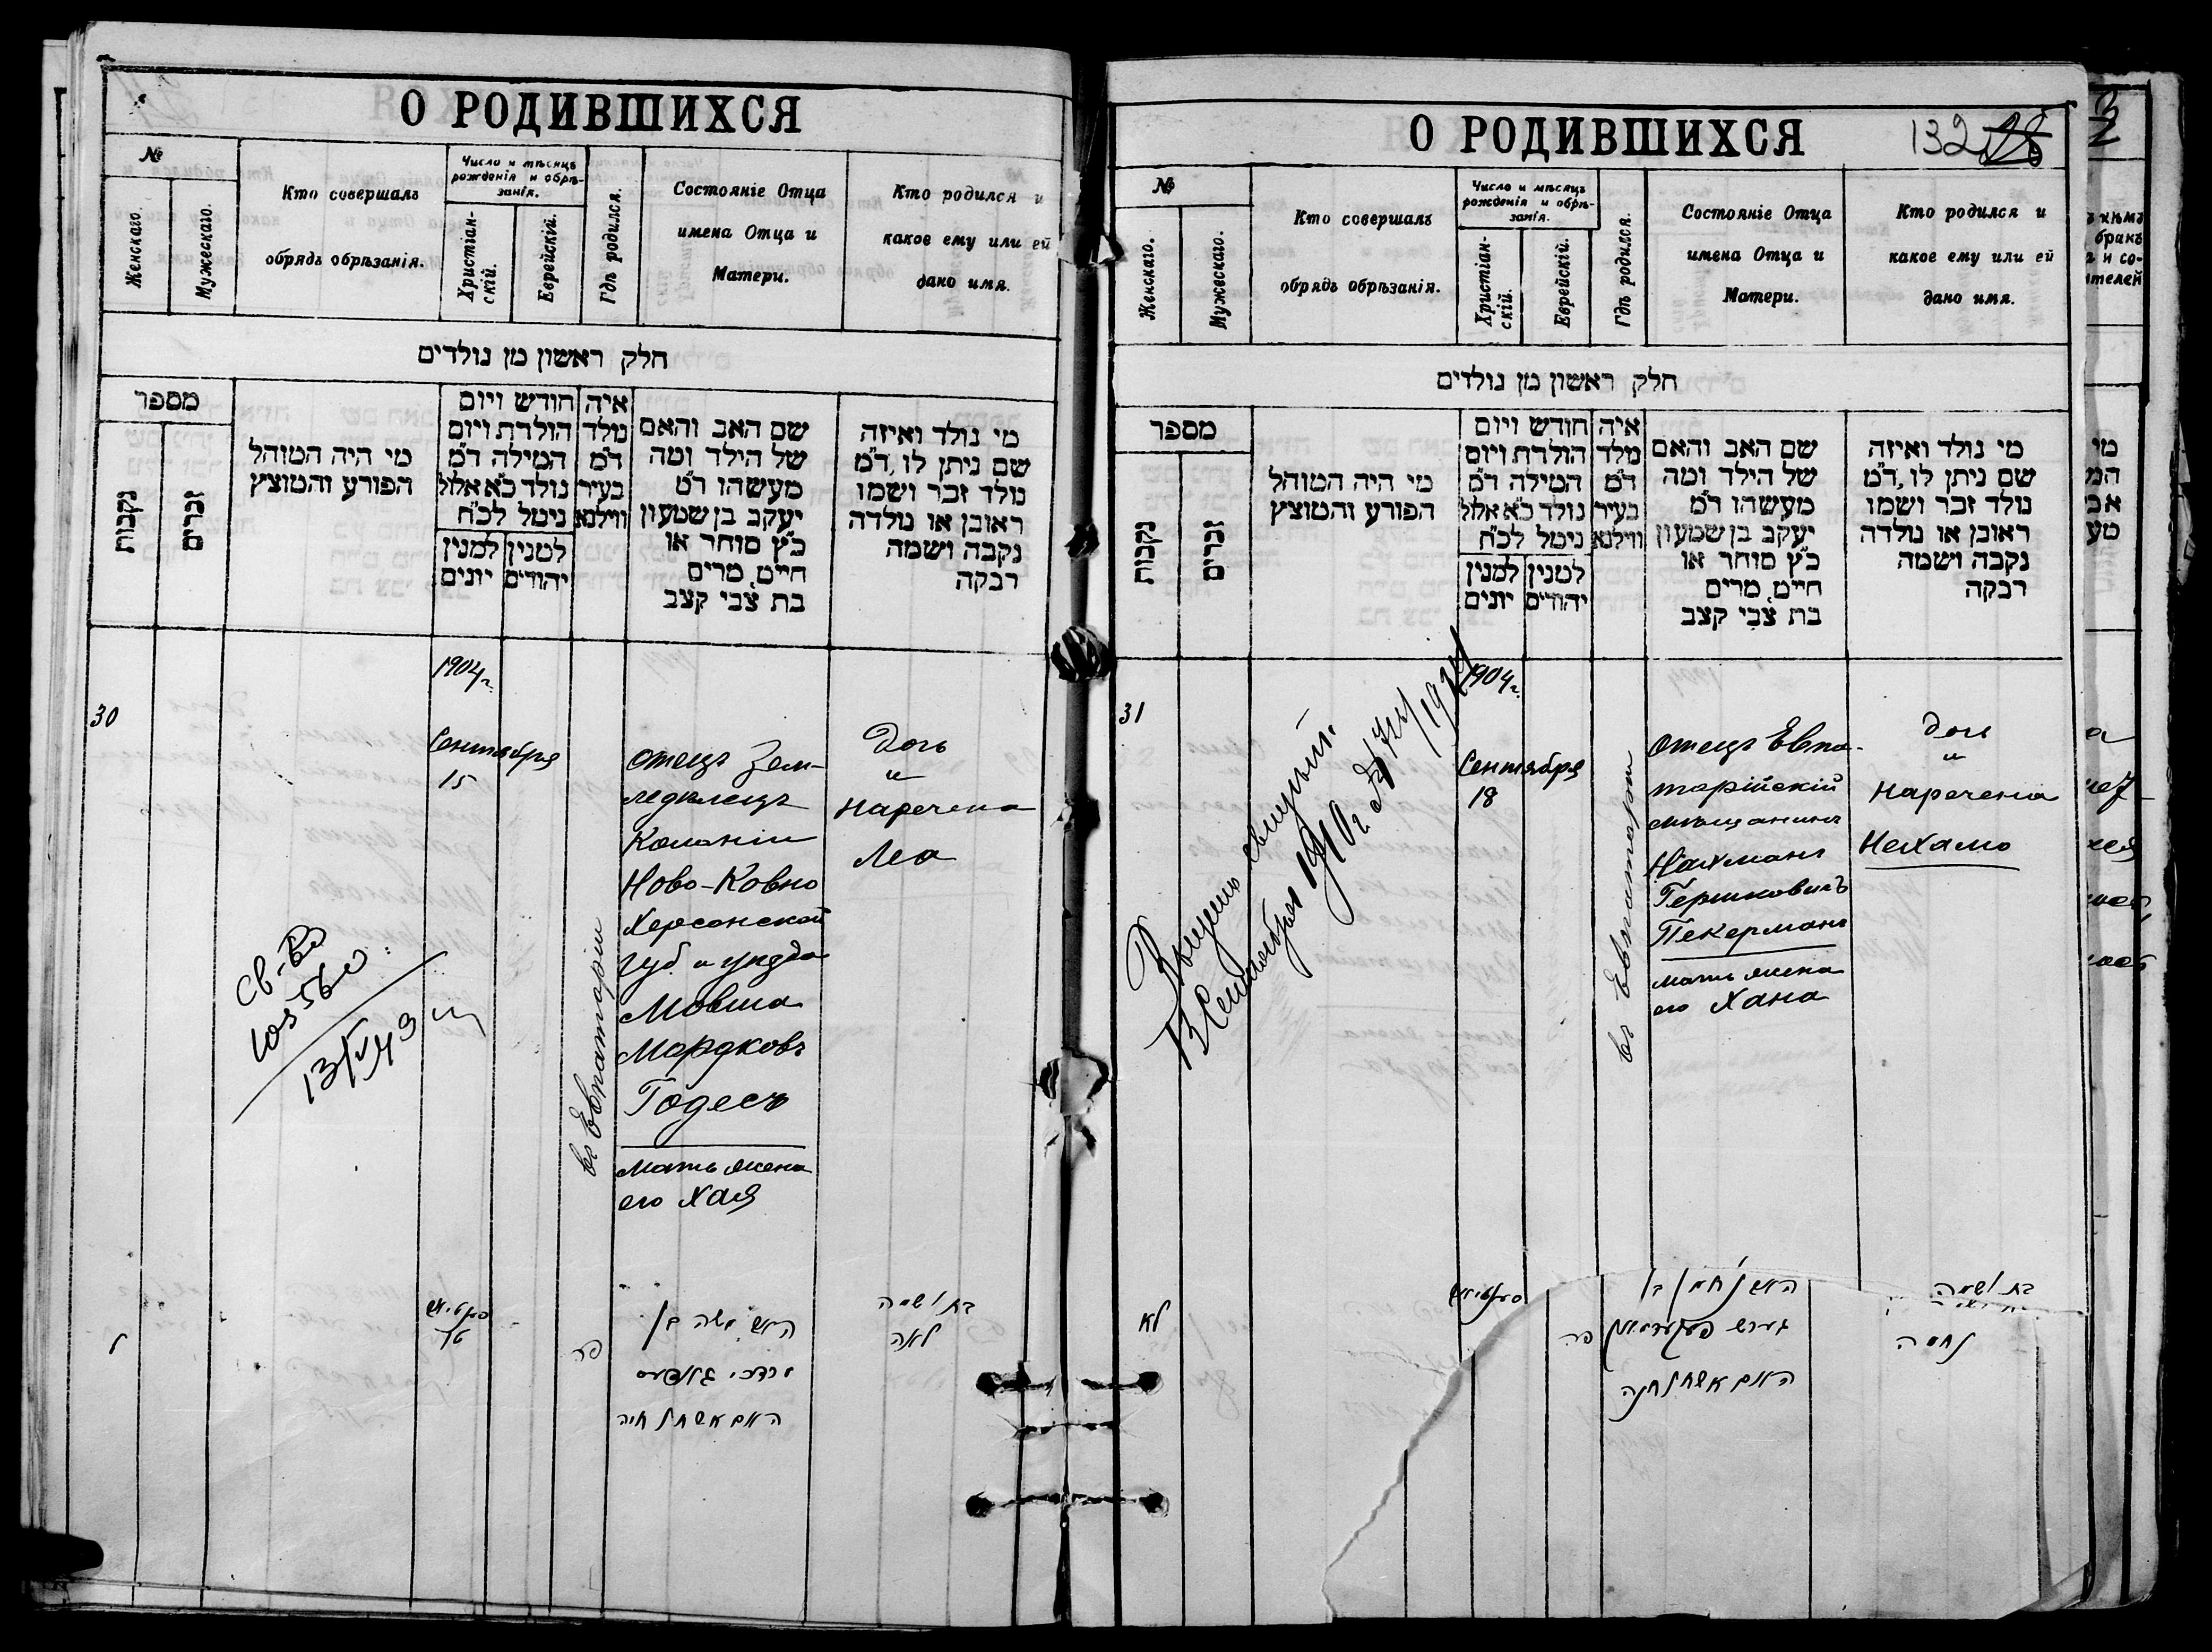 О РОДИВШИХСЯ
№
Женскаго.
Мужескаго.
Кто совершалъ
обрядъ обрѣзанія.
Число и мѣсяцъ
рожденія и обрѣ-
занія.
Христіан-
скій.
Еврейскій.
Гдѣ родился.
Состояніе Отца
имена Отца и
Матери.
Кто родился и
какое ему или ей
дано имя.
חלק ראשון מן נולדים
מספר
נקבות
זכרים
מי היה המוהל
הפורע והמוצץ
חודש ויום
הולדת ויום
המילה ד״מ
נולד כ״א אלול
ניטל לכ״ח
למנין
יונים
למנין
יהודים
איה
נולד
ד״מ
בעיר
ווילנא
שם האב והאם
של הילד ומה
מעשהו ד״מ
יעקב בן שמעון
כ״ץ סוחר או
חייט, מרים
בת צבי קצב
מי נולד ואיזה
שם ניתן לו, ד״מ
נולד זכר ושמו
ראובן או נולדה
נקבה ושמה
רבקה
30
1904 г.
Сентября
15
въ Евпаторіи
отецъ Зем-
ледѣлецъ
Колоніи
Ново-Ковно
Херсонской
губ. и уѣзда
Мовша
Мордковъ
Годесъ
мать жена
его Хая
Дочь
и
наречена
Леа
св-во
13/V 49
ל
האב משה בן
מרדכי
האם אשתו חיה
בת ושמה
לאה
О РОДИВШИХСЯ
132
№
Женскаго.
Мужескаго.
Кто совершалъ
обрядъ обрѣзанія.
Число и мѣсяцъ
рожденія и обрѣ-
занія.
Христіан-
скій.
Еврейскій.
Гдѣ родился.
Состояніе Отца
имена Отца и
Матери.
Кто родился и
какое ему или ей
дано имя.
חלק ראשון מן נולדים
מספר
נקבות
זכרים
מי היה המוהל
הפורע והמוצץ
חודש ויום
הולדת ויום
המילה ד״מ
נולד כ״א אלול
ניטל לכ״ח
למנין
יונים
למנין
יהודים
איה
נולד
ד״מ
בעיר
ווילנא
שם האב והאם
של הילד ומה
מעשהו ד״מ
יעקב בן שמעון
כ״ץ סוחר או
חייט, מרים
בת צבי קצב
מי נולד ואיזה
שם ניתן לו, ד״מ
נולד זכר ושמו
ראובן או נולדה
נקבה ושמה
רבקה
31
1904 г.
Сентября
18
въ Евпаторіи
отецъ Евпа-
торійскій
мѣщанинъ
Нахманъ
Гершковичъ
Пекерманъ
мать жена
его Хана
дочь
и
наречена
Нехамо
Сентября 1910 г.
לא
האב נחמן בן
גערש פעקערמאן
האם אשתו חנה
בת ושמה
נחמה